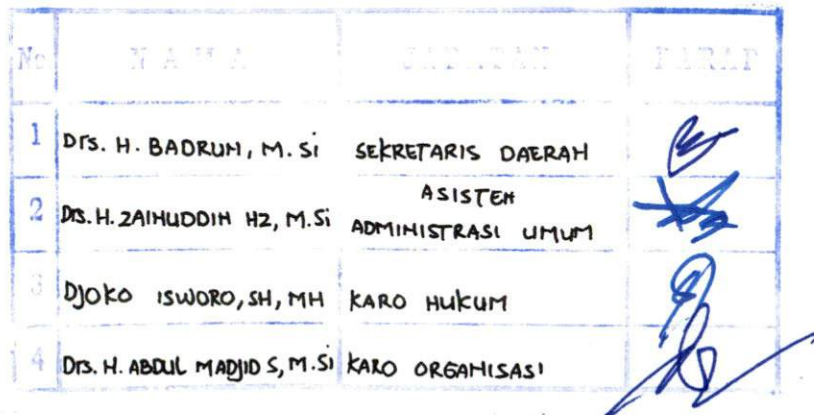 No N A M A JABATAN PARAF
1 Drs. H. BADRUN, M. Si SEKRETARIS DAERAH
2 Drs. H. ZAINUDDIN HZ, M.Si ASISTEN
ADMINISTRASI UMUM
3 DJOKO ISWORO, SH, MH KARO HUKUM
4 Drs. H. ABDUL MADJID S, M.Si KARO ORGANISASI